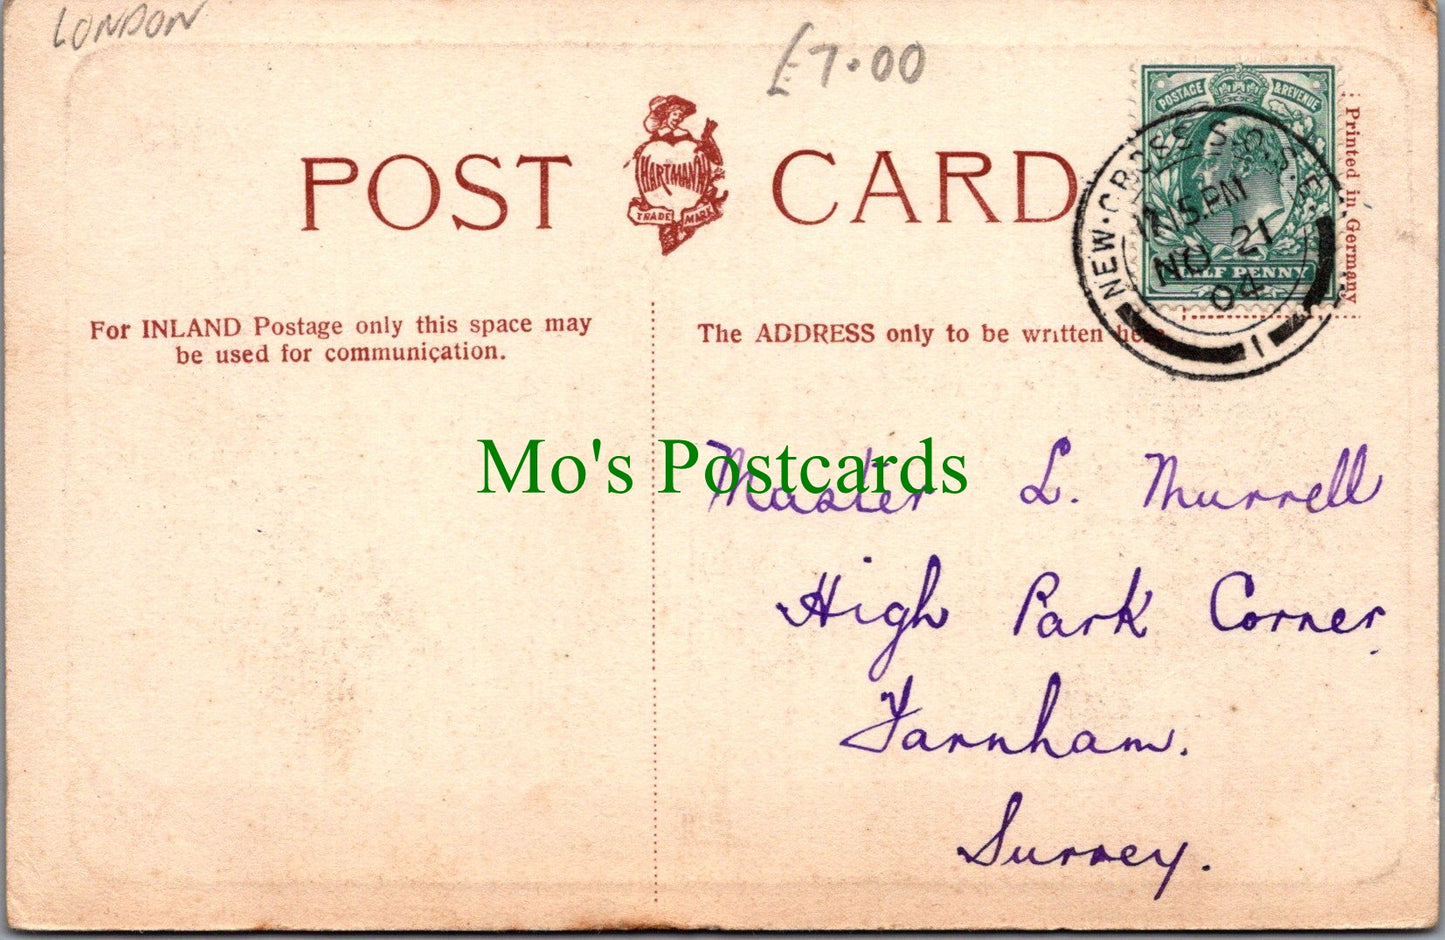 LONDON
£7.00
POST CARD
HARTMANN
TRADE MARK
POSTAGE & REVENUE
HALF PENNY
NEW·CROSS S.O. S.E.
12.15.PM
NO 21
04
1
Printed in Germany
For INLAND Postage only this space may
be used for communication.
The ADDRESS only to be written here
Mo's Postcards
Master L. Murrell
High Park Corner
Farnham.
Surrey.